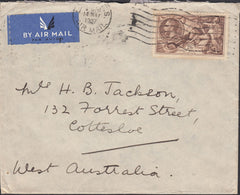 BY AIR MAIL
Mrs H. B. Jackson,
132 Forrest Street,
Cottesloe
West Australia.